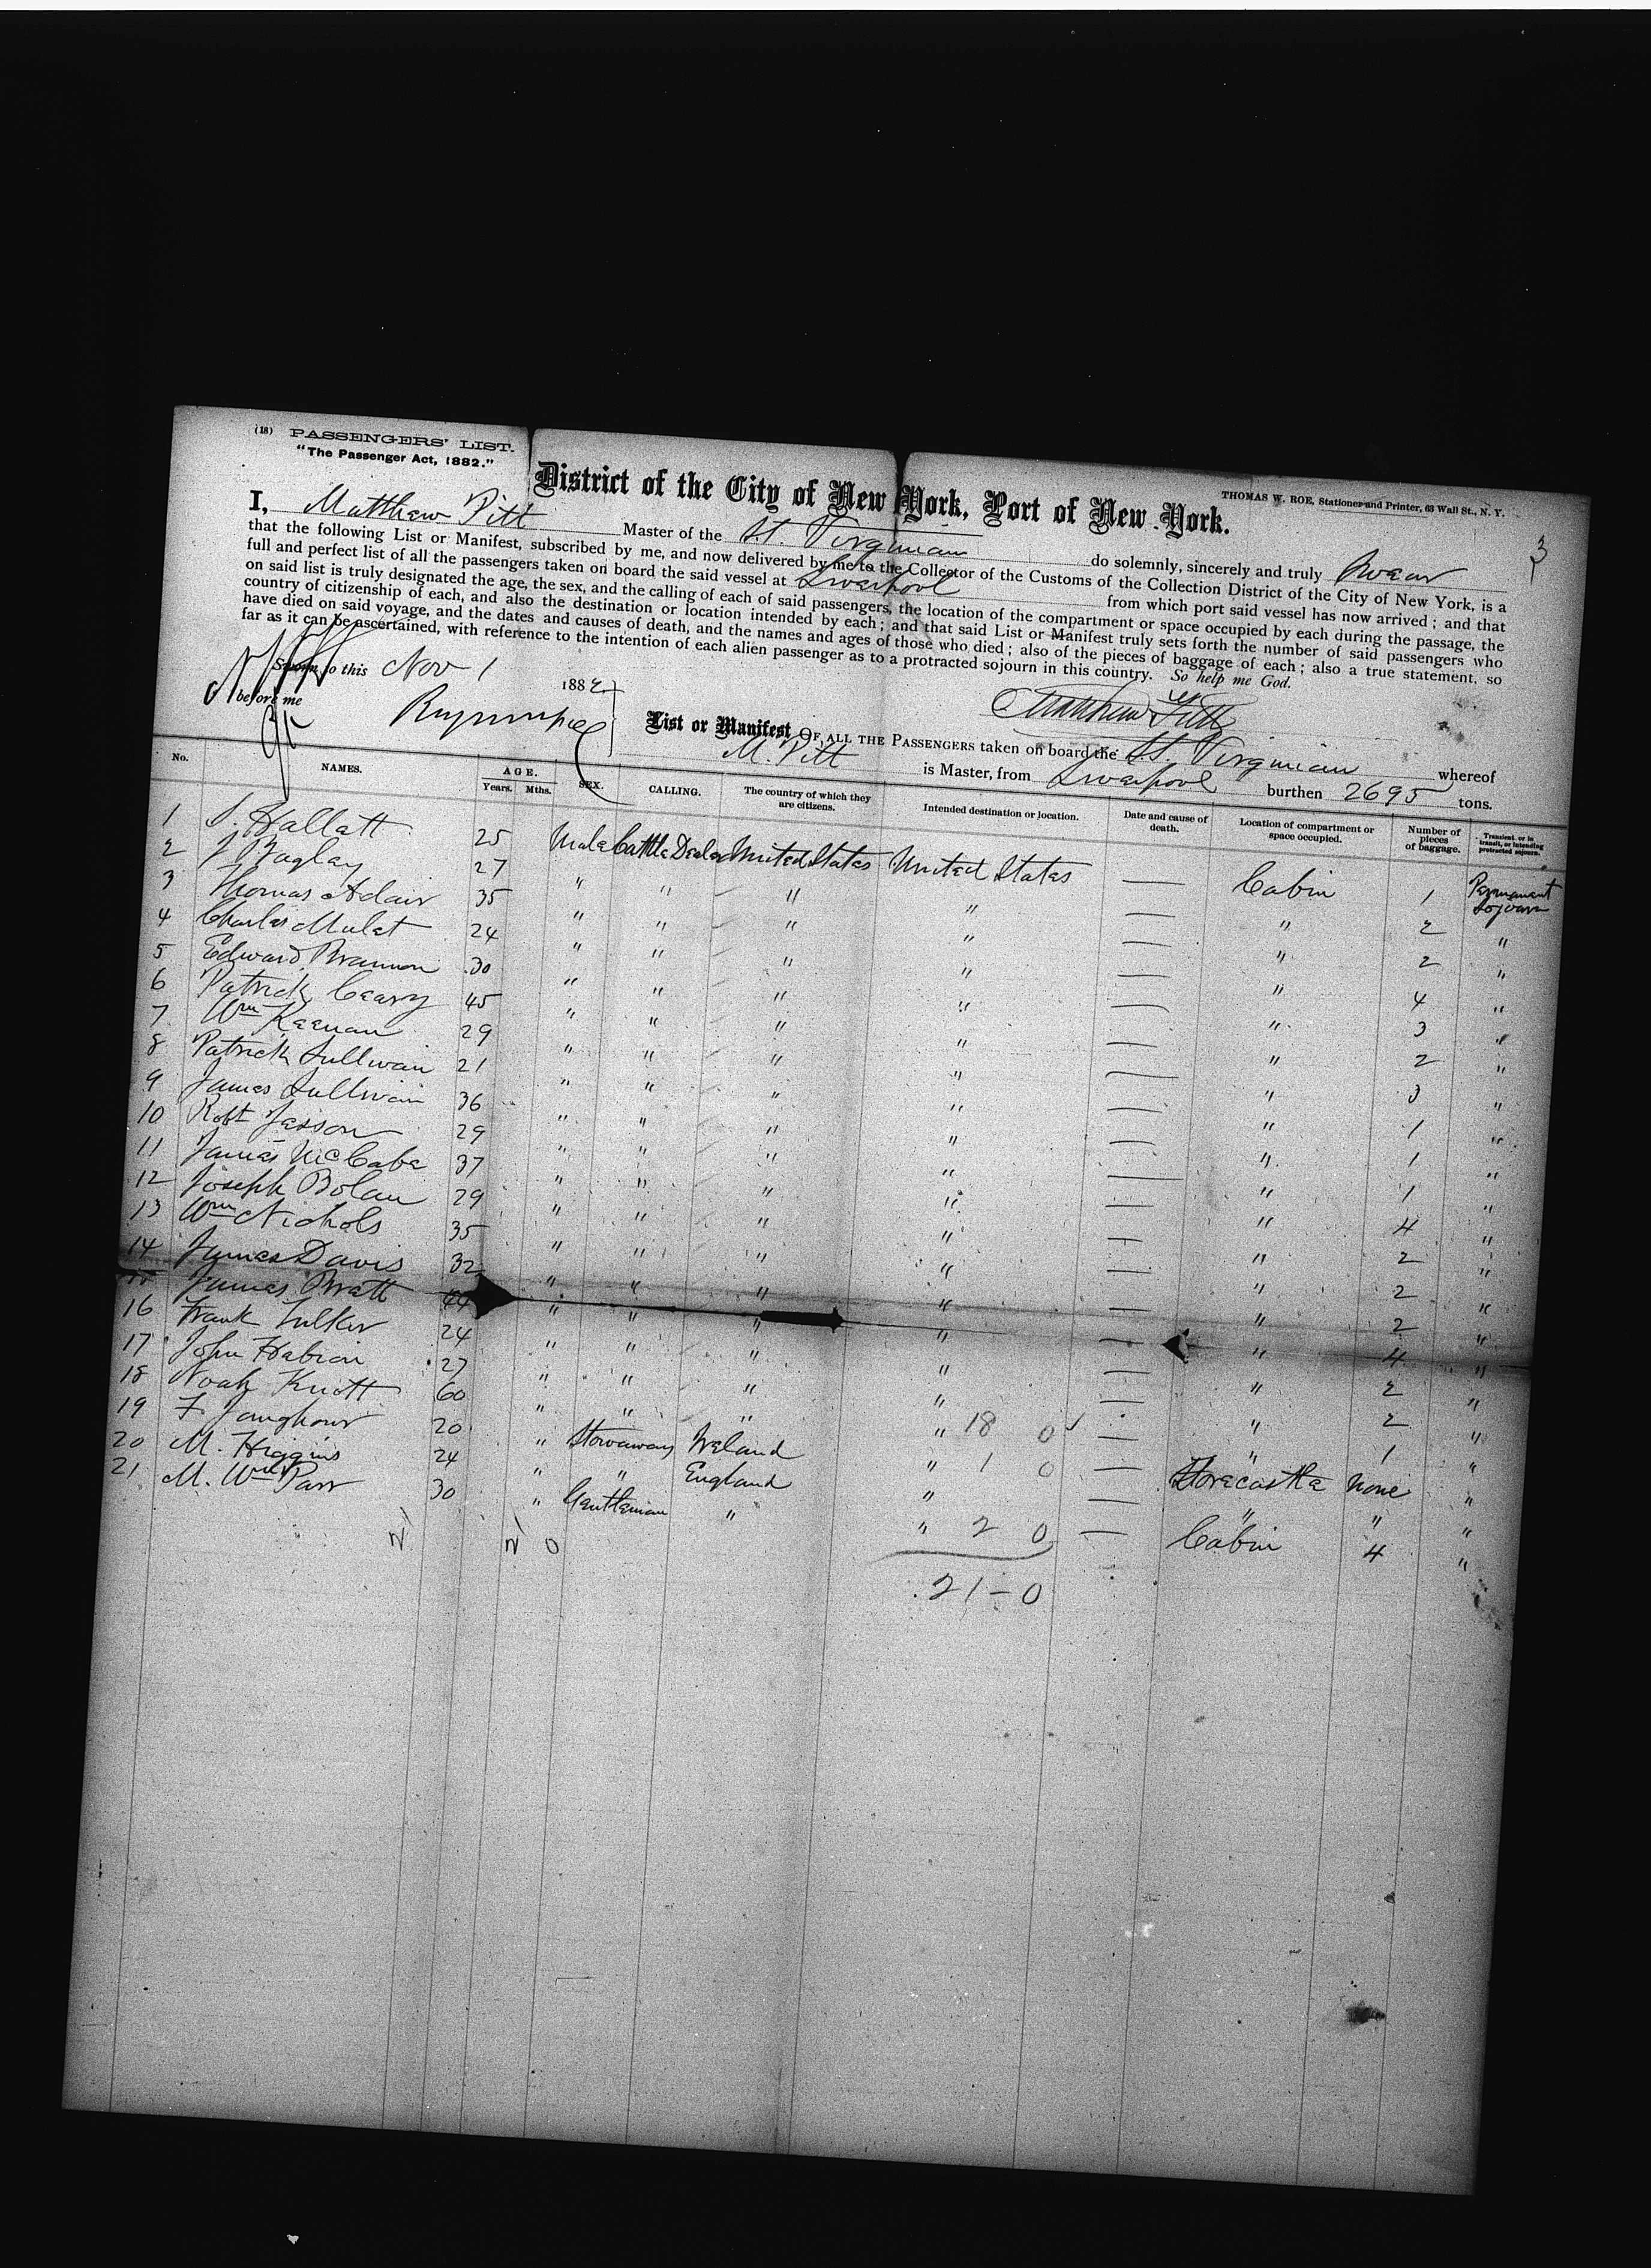 (18) PASSENGERS' LIST.
"The Passenger Act, 1882."
THOMAS W. ROE, Stationer and Printer, 63 Wall St., N. Y.
District of the City of New York, Port of New York.
3
I, Matthew Pitt Master of the St. Virginian do solemnly, sincerely and truly Swear
that the following List or Manifest, subscribed by me, and now delivered by me to the Collector of the Customs of the Collection District of the City of New York, is a
full and perfect list of all the passengers taken on board the said vessel at Liverpool from which port said vessel has now arrived; and that
on said list is truly designated the age, the sex, and the calling of each of said passengers, the location of the compartment or space occupied by each during the passage, the
country of citizenship of each, and also the destination or location intended by each; and that said List or Manifest truly sets forth the number of said passengers who
have died on said voyage, and the dates and causes of death, and the names and ages of those who died; also of the pieces of baggage of each; also a true statement, so
far as it can be ascertained, with reference to the intention of each alien passenger as to a protracted sojourn in this country. So help me God.
Sworn to this Nov 1 1882
before me
Matthew Pitt
List or Manifest OF ALL THE PASSENGERS taken on board the St. Virginian whereof
M. Pitt is Master, from Liverpool burthen 2695 tons.
No. NAMES. AGE. Years. Mths. SEX. CALLING. The country of which they are citizens. Intended destination or location. Date and cause of death. Location of compartment or space occupied. Number of pieces of baggage. Transient, or in transit, or intending protracted sojourn.
1 S. Hallatt 25 Male Cattle Dealer United States United States — Cabin 1 Permanent Sojourn
2 J Baglay 27 " " " " — " 2 "
3 Thomas Adair 35 " " " " — " 2 "
4 Charles Mulat 24 " " " " — " 4 "
5 Edward Brannon 30 " " " " — " 3 "
6 Patrick Ceary 45 " " " " — " 2 "
7 Wm Keenan 29 " " " " — " 3 "
8 Patrick Sullivan 21 " " " " — " 1 "
9 James Sullivan 36 " " " " — " 1 "
10 Robt Jesson 29 " " " " — " 1 "
11 James McCabe 37 " " " " — " 4 "
12 Joseph Bolan 29 " " " " — " 2 "
13 Wm Nichols 35 " " " " — " 2 "
14 James Davis 32 " " " " — " 2 "
15 James Pratt 44 " " " " — " 4 "
16 Frank Tulker 24 " " " " — " 2 "
17 John Habion 27 " " " " — " 2 "
18 Noah Knott 60 " " " " 18 0 — " 1 "
19 F. 20 " Stowaway Ireland " 1 0 — Forecastle None "
20 M. Higgins 24 " " England " — " " "
21 M. Wm Parr 30 " Gentleman " " 2 0 — Cabin 4 "
21-0